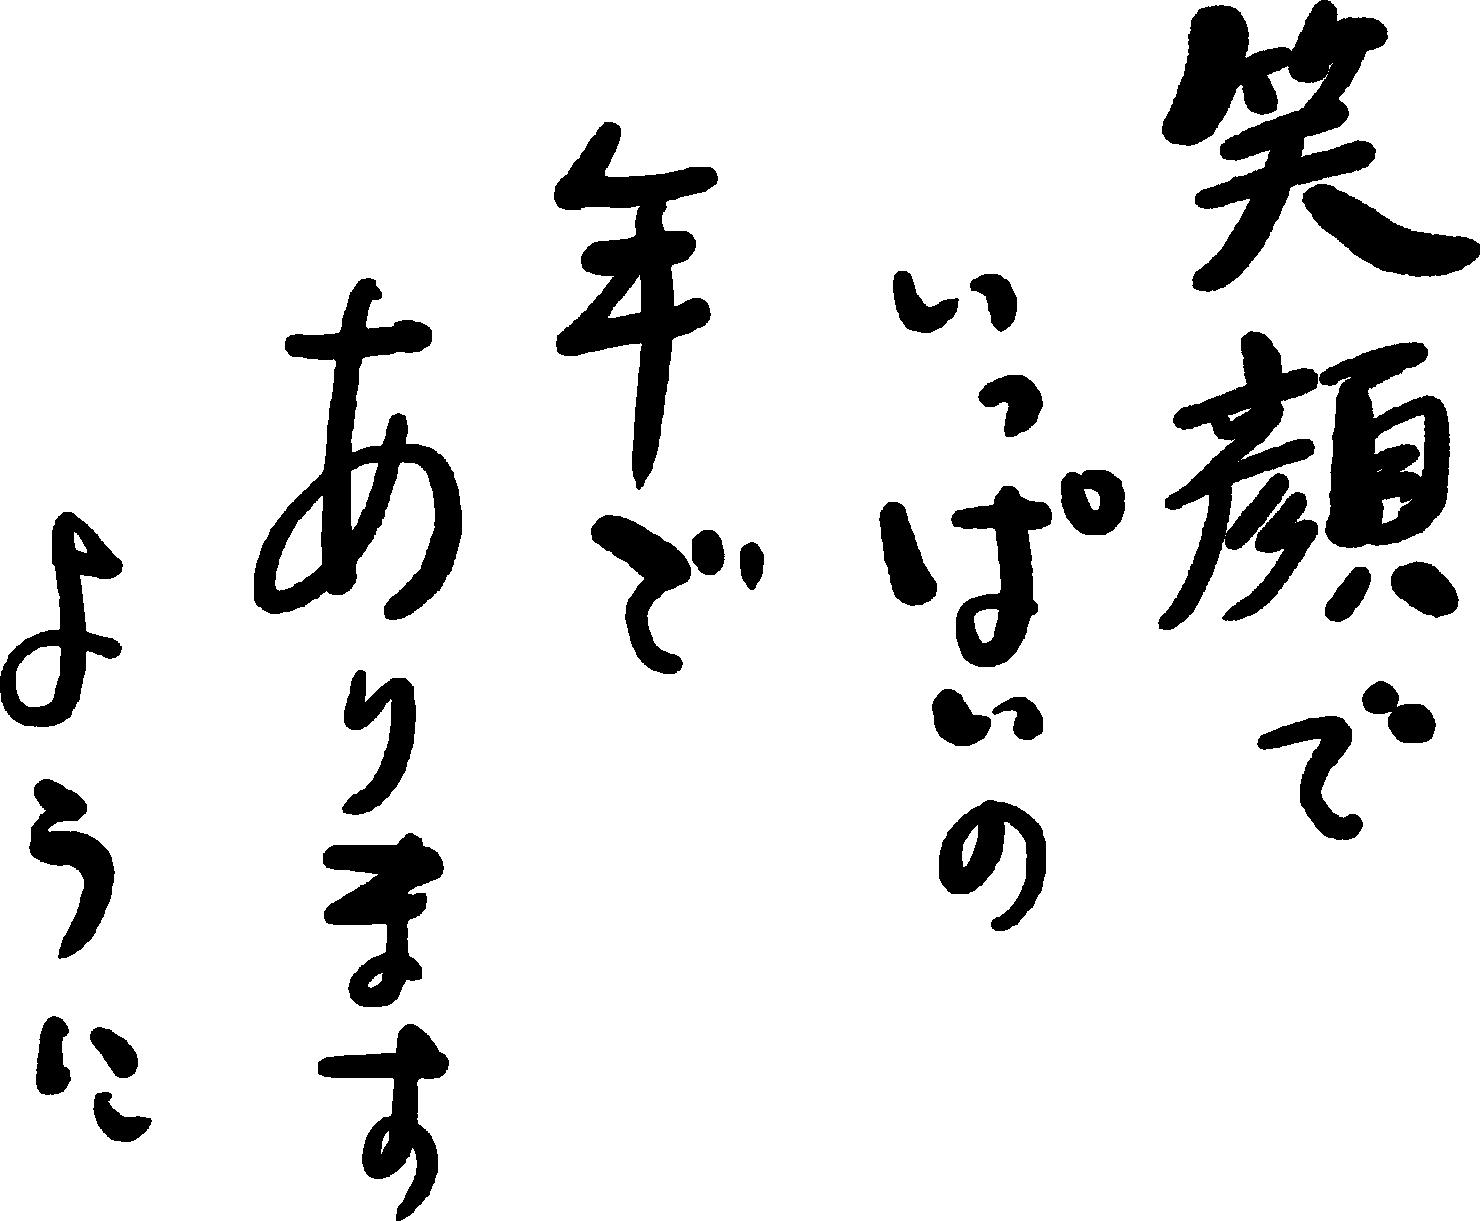 笑顔で
いっぱいの
年で
あります
ように